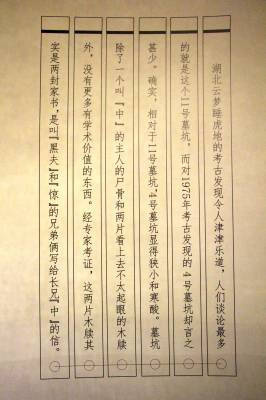 湖北云梦睡虎地的考古发现令人津津乐道，人们谈论最多
的就是这个11号墓坑，而对1975年考古发现的4号墓坑却言之
甚少。确实，相对于11号墓坑，4号墓坑显得狭小和寒酸。墓坑
除了一个叫『中』的主人的尸骨和两片看上去不太起眼的木牍
外，没有更多有学术价值的东西。经专家考证，这两片木牍其
实是两封家书，是叫『黑夫』和『惊』的兄弟俩写给长兄『中』的信。